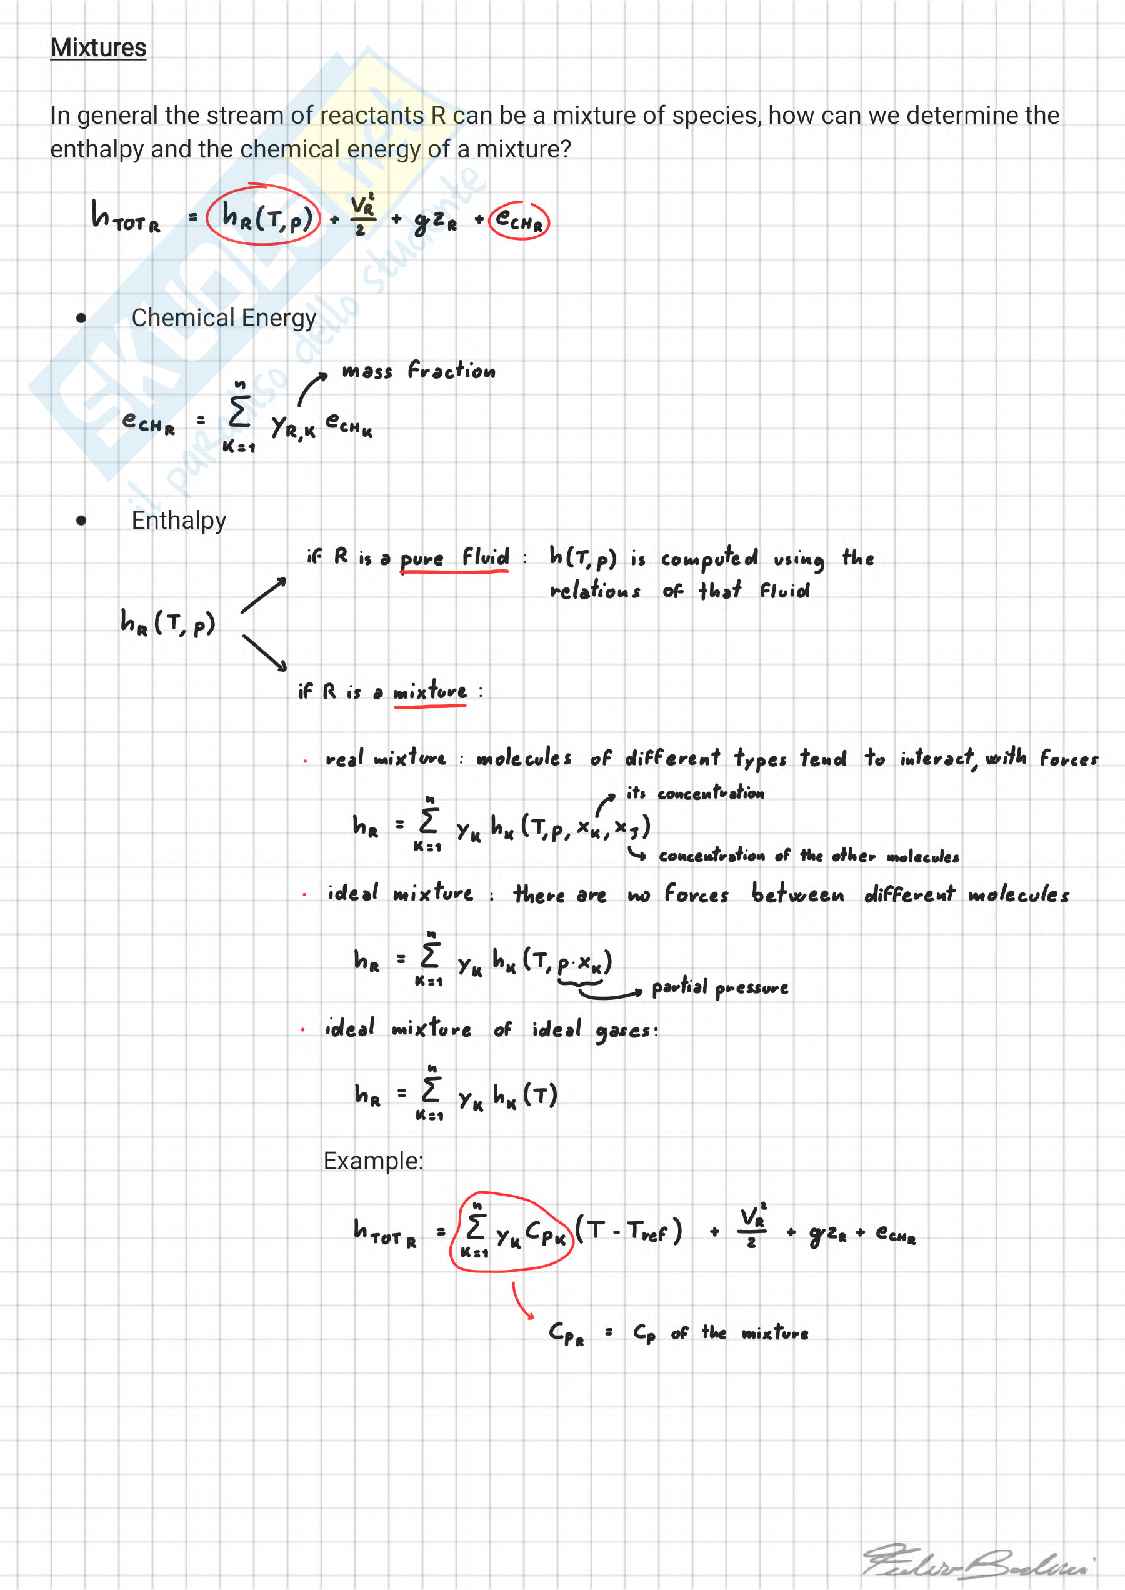 Mixtures
In general the stream of reactants R can be a mixture of species, how can we determine the
enthalpy and the chemical energy of a mixture?
h_TOT_R = h_R(T,p) + V_R²/2 + gz_R + e_CH_R
• Chemical Energy
mass fraction
e_CH_R = Σ_{K=1}^{n} y_{R,K} e_CH_K
• Enthalpy
if R is a pure fluid : h(T,p) is computed using the
relations of that fluid
h_R(T,p)
if R is a mixture :
· real mixture : molecules of different types tend to interact, with forces
its concentration
h_R = Σ_{K=1}^{n} y_K h_K (T,p, x_K, x_J)
concentration of the other molecules
· ideal mixture : there are no forces between different molecules
h_R = Σ_{K=1}^{n} y_K h_K (T, p·x_K)
partial pressure
· ideal mixture of ideal gases:
h_R = Σ_{K=1}^{n} y_K h_K (T)
Example:
h_TOT_R = Σ_{K=1}^{n} y_K C_PK (T - T_ref) + V_R²/2 + gz_R + e_CH_R
C_P_R = C_P of the mixture
SKUOLA.net
il paradiso dello studente